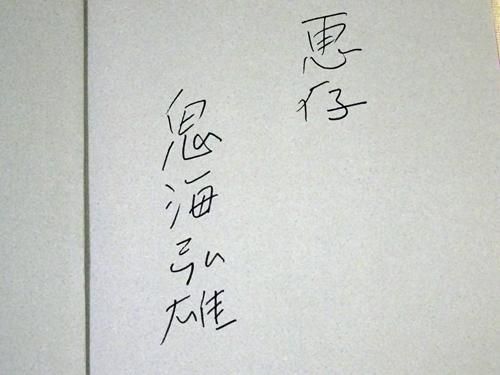 恵存
鬼海弘雄